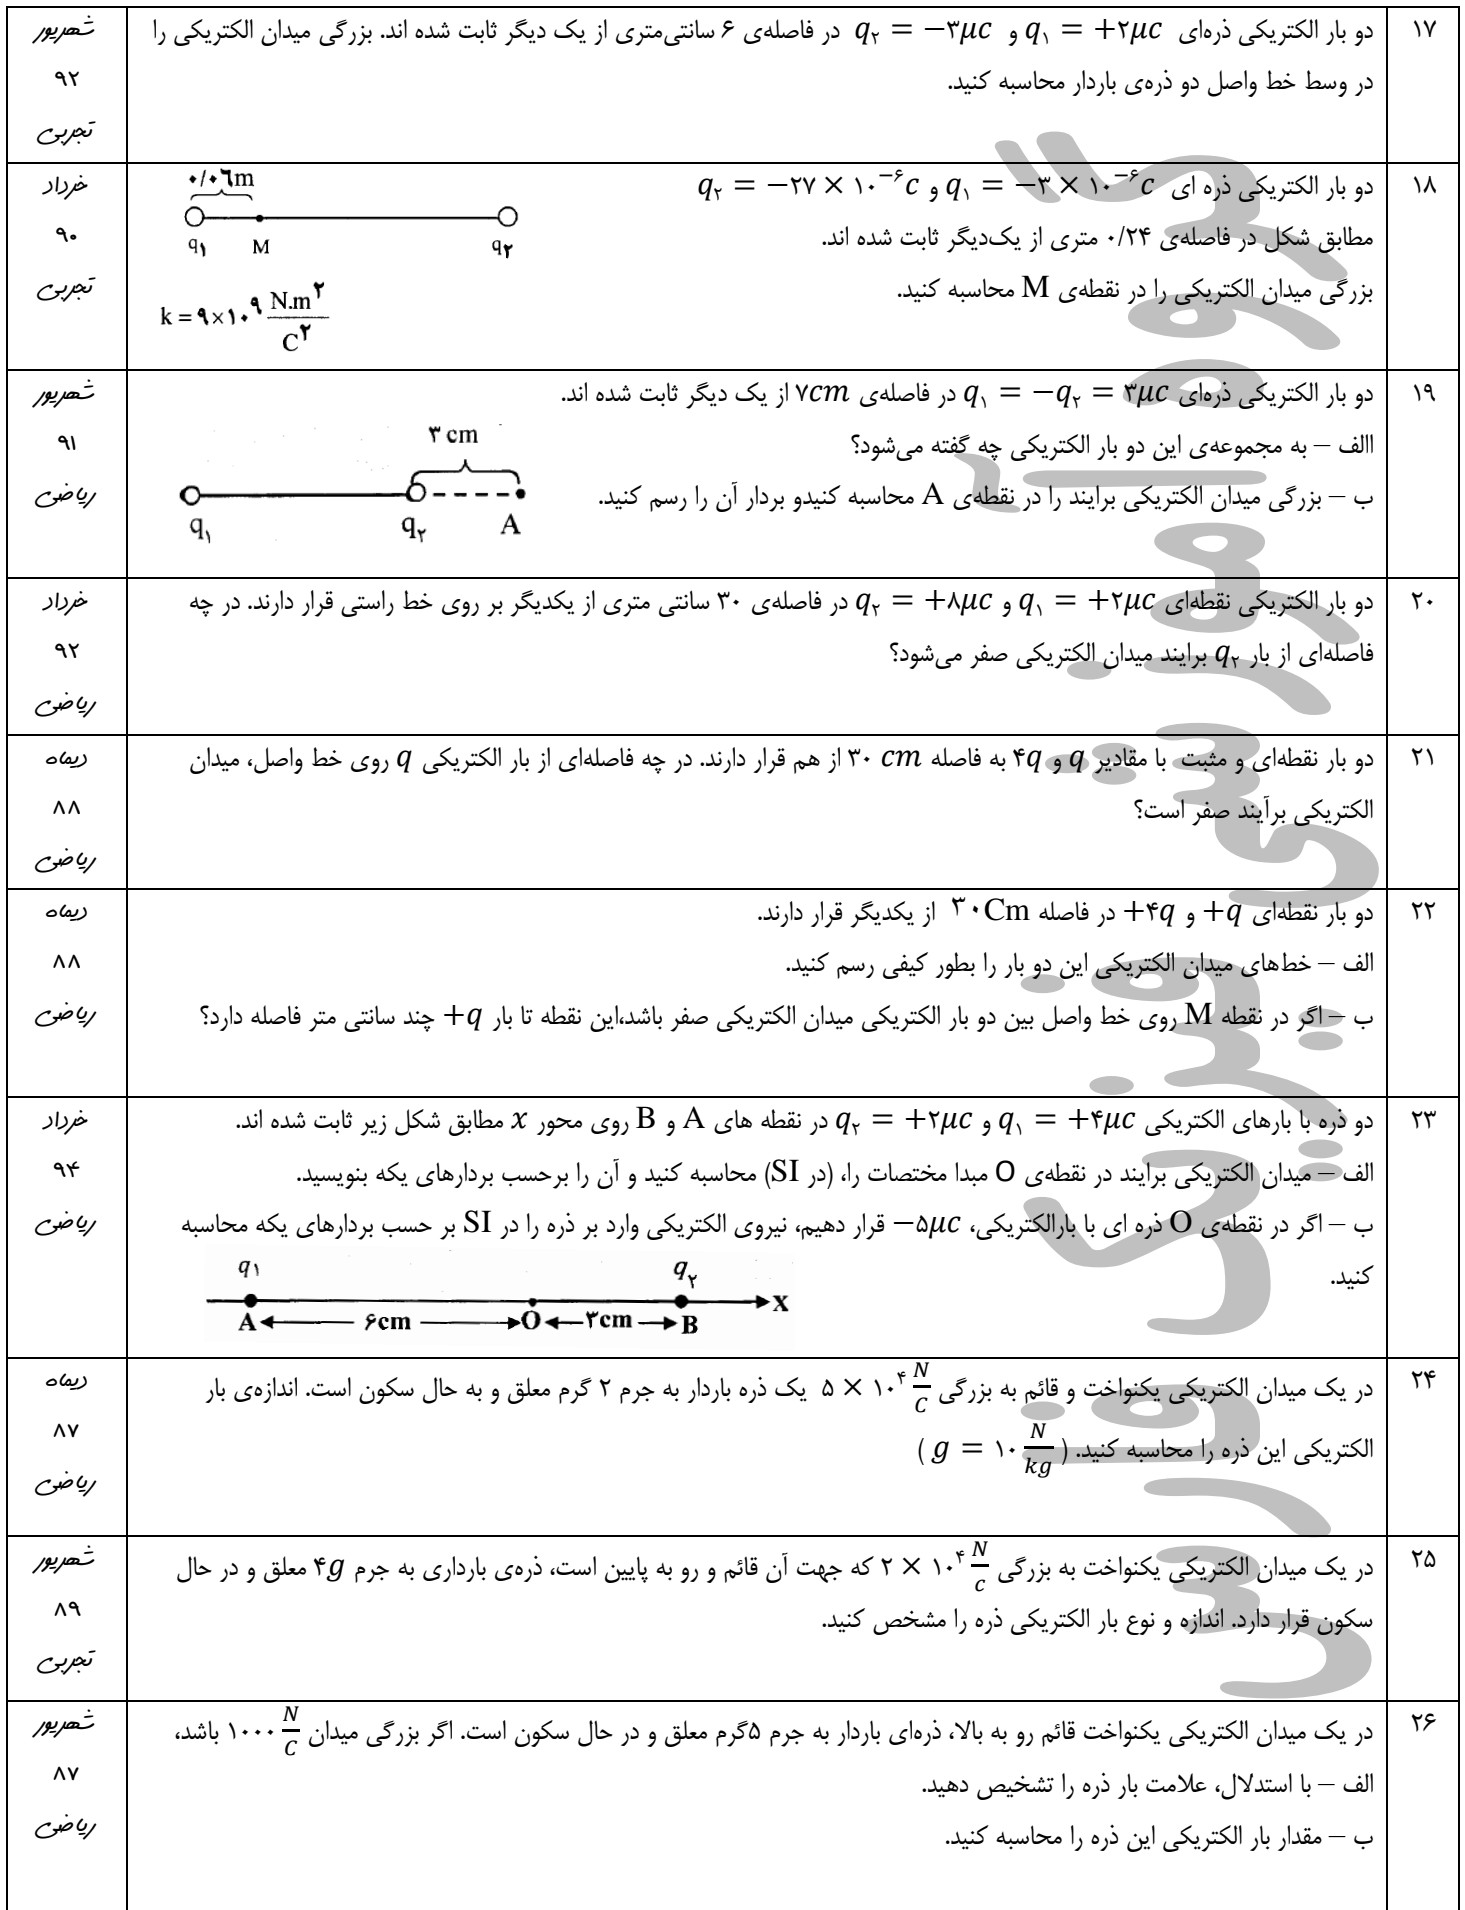 ۱۷
دو بار الکتریکی ذره‌ای q₁ = +۲μc و q₂ = −۳μc در فاصله‌ی ۶ سانتی‌متری از یک دیگر ثابت شده اند. بزرگی میدان الکتریکی را
در وسط خط واصل دو ذره‌ی باردار محاسبه کنید.
شهریور
۹۲
تجربی
۱۸
دو بار الکتریکی ذره ای q₁ = −۳ × ۱۰⁻⁶c و q₂ = −۲۷ × ۱۰⁻⁶c
مطابق شکل در فاصله‌ی ۰/۲۴ متری از یک‌دیگر ثابت شده اند.
بزرگی میدان الکتریکی را در نقطه‌ی M محاسبه کنید.
۰/۰۶m
q₁ M q₂
k = ۹×۱۰⁹ N.m²/C²
خرداد
۹۰
تجربی
۱۹
دو بار الکتریکی ذره‌ای q₁ = −q₂ = ۳μc در فاصله‌ی ۷cm از یک دیگر ثابت شده اند.
االف – به مجموعه‌ی این دو بار الکتریکی چه گفته می‌شود؟
ب – بزرگی میدان الکتریکی برایند را در نقطه‌ی A محاسبه کنیدو بردار آن را رسم کنید.
۳ cm
q₁ q₂ A
شهریور
۹۱
ریاضی
۲۰
دو بار الکتریکی نقطه‌ای q₁ = +۲μc و q₂ = +۸μc در فاصله‌ی ۳۰ سانتی متری از یکدیگر بر روی خط راستی قرار دارند. در چه
فاصله‌ای از بار q₂ برایند میدان الکتریکی صفر می‌شود؟
خرداد
۹۲
ریاضی
۲۱
دو بار نقطه‌ای و مثبت با مقادیر q و ۴q به فاصله ۳۰ cm از هم قرار دارند. در چه فاصله‌ای از بار الکتریکی q روی خط واصل، میدان
الکتریکی برآیند صفر است؟
دیماه
۸۸
ریاضی
۲۲
دو بار نقطه‌ای +q و +۴q در فاصله ۳۰Cm از یکدیگر قرار دارند.
الف – خط‌های میدان الکتریکی این دو بار را بطور کیفی رسم کنید.
ب – اگر در نقطه M روی خط واصل بین دو بار الکتریکی میدان الکتریکی صفر باشد،این نقطه تا بار +q چند سانتی متر فاصله دارد؟
دیماه
۸۸
ریاضی
۲۳
دو ذره با بارهای الکتریکی q₁ = +۴μc و q₂ = +۲μc در نقطه های A و B روی محور x مطابق شکل زیر ثابت شده اند.
الف – میدان الکتریکی برایند در نقطه‌ی O مبدا مختصات را، (در SI) محاسبه کنید و آن را برحسب بردارهای یکه بنویسید.
ب – اگر در نقطه‌ی O ذره ای با بارالکتریکی، −۵μc قرار دهیم، نیروی الکتریکی وارد بر ذره را در SI بر حسب بردارهای یکه محاسبه
کنید.
q₁ q₂
A ۶cm O ۳cm B X
خرداد
۹۴
ریاضی
۲۴
در یک میدان الکتریکی یکنواخت و قائم به بزرگی ۵ × ۱۰⁴ N/C یک ذره باردار به جرم ۲ گرم معلق و به حال سکون است. اندازه‌ی بار
الکتریکی این ذره را محاسبه کنید. ( g = ۱۰ N/kg )
دیماه
۸۷
ریاضی
۲۵
در یک میدان الکتریکی یکنواخت به بزرگی ۲ × ۱۰⁴ N/c که جهت آن قائم و رو به پایین است، ذره‌ی بارداری به جرم ۴g معلق و در حال
سکون قرار دارد. اندازه و نوع بار الکتریکی ذره را مشخص کنید.
شهریور
۸۹
تجربی
۲۶
در یک میدان الکتریکی یکنواخت قائم رو به بالا، ذره‌ای باردار به جرم ۵گرم معلق و در حال سکون است. اگر بزرگی میدان ۱۰۰۰ N/C باشد،
الف – با استدلال، علامت بار ذره را تشخیص دهید.
ب – مقدار بار الکتریکی این ذره را محاسبه کنید.
شهریور
۸۷
ریاضی